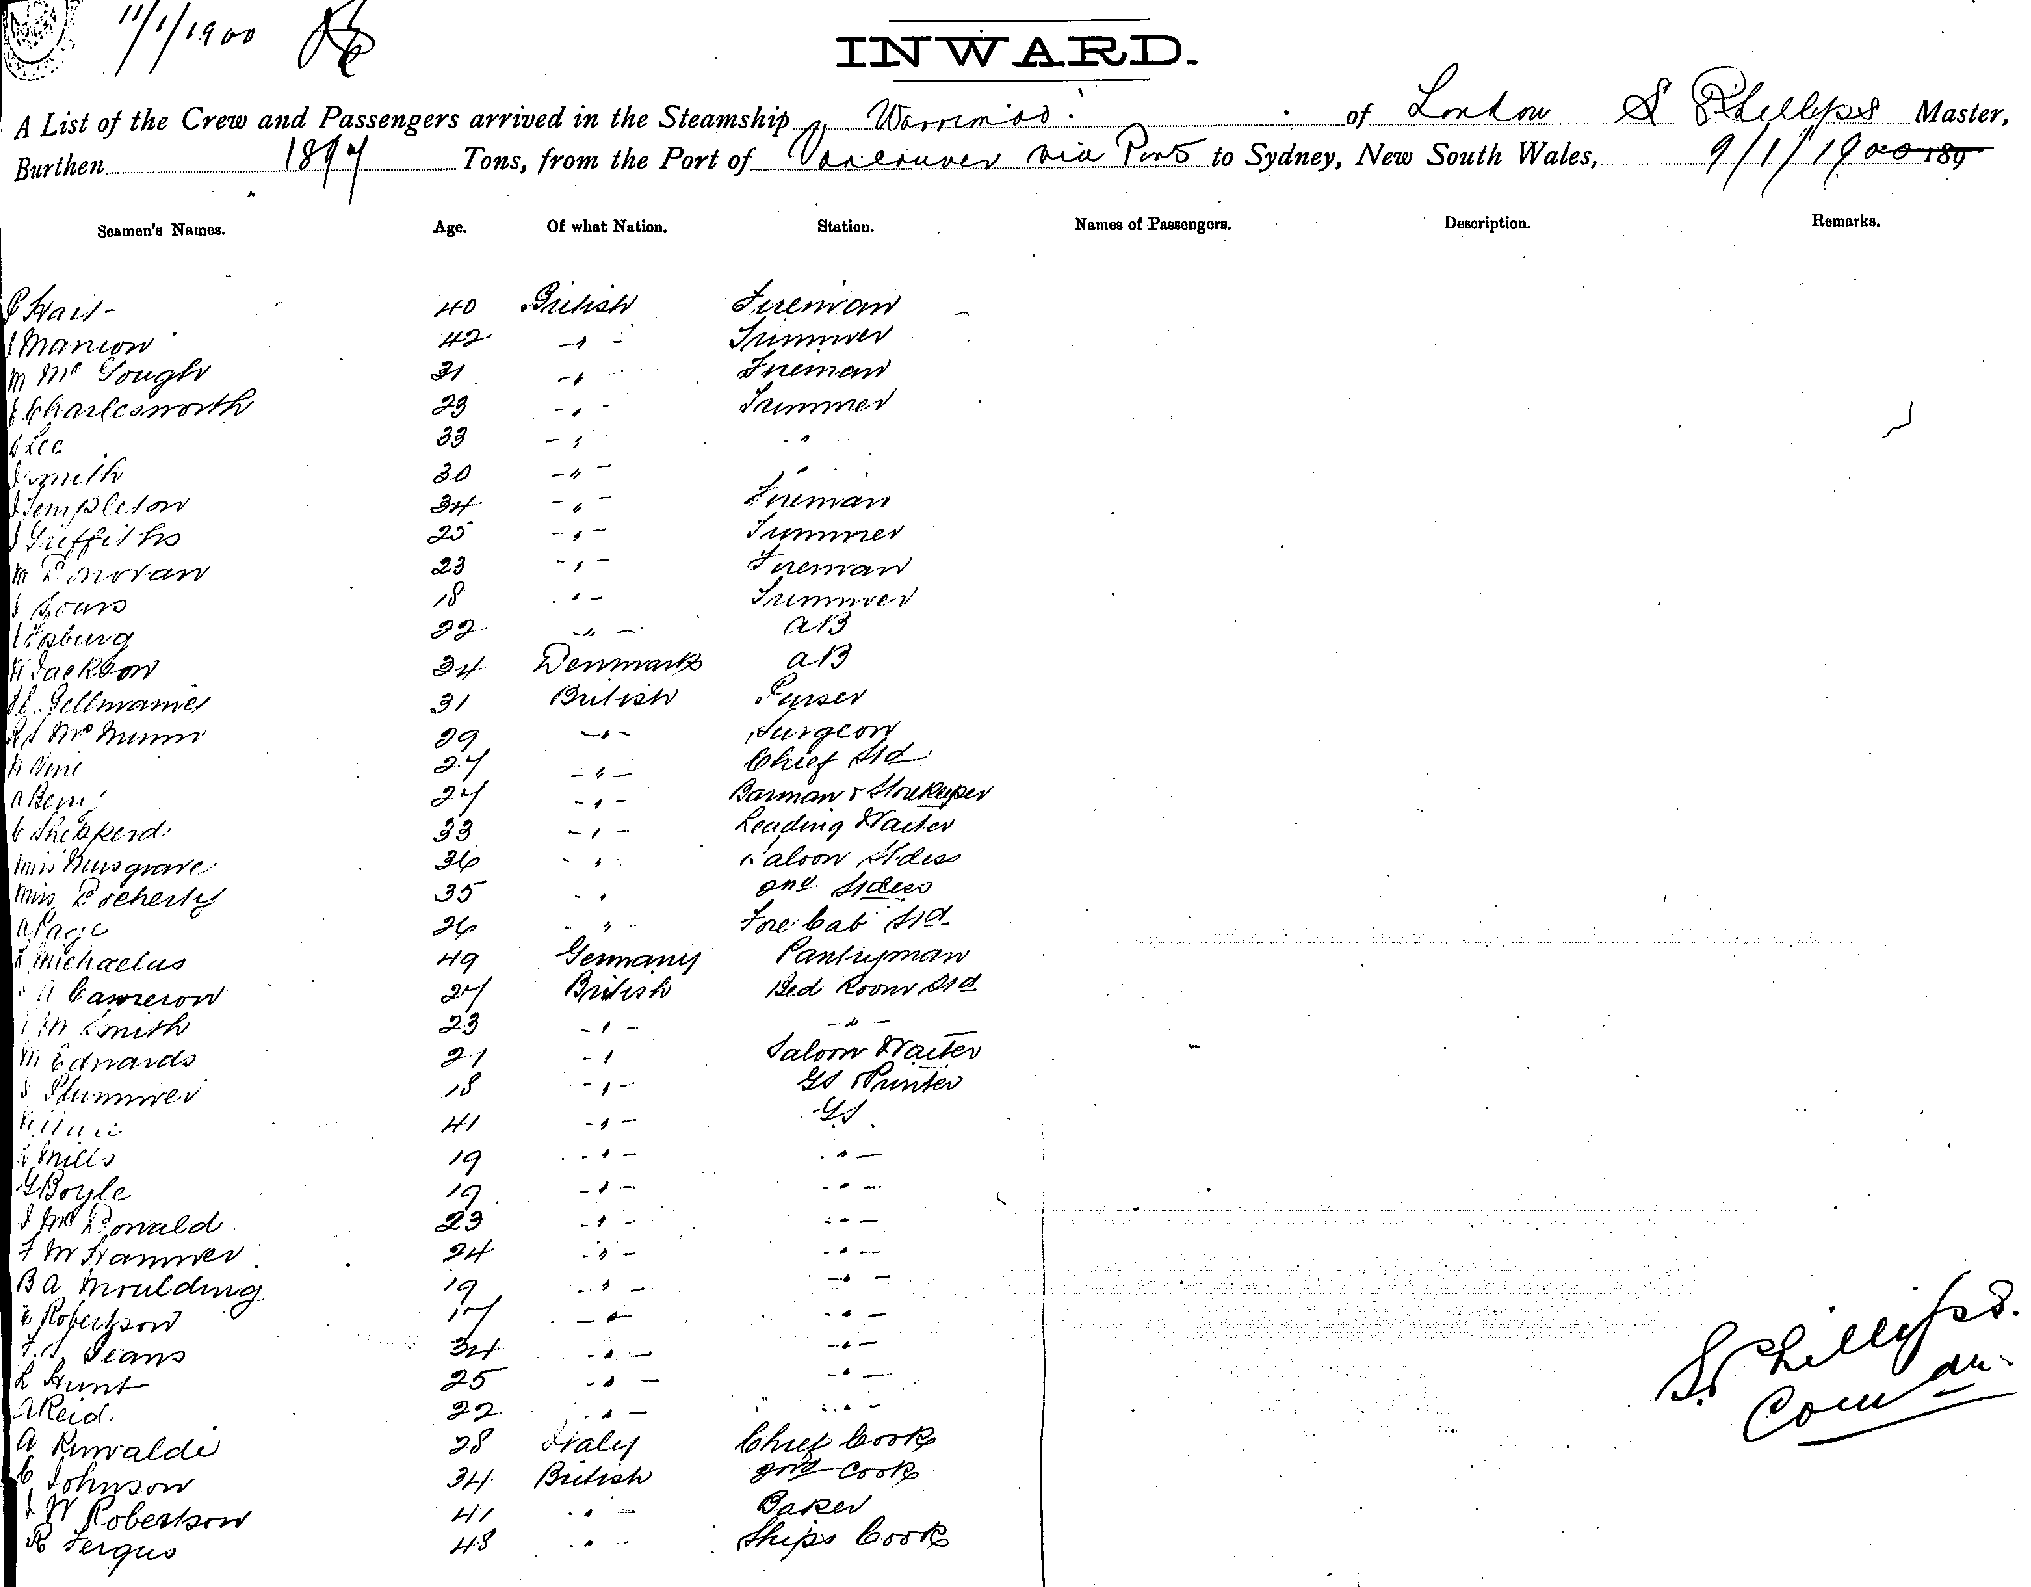 11/1/1900
INWARD.
A List of the Crew and Passengers arrived in the Steamship Warrimoo. of London S Phillips Master,
Burthen 1897 Tons, from the Port of Vancouver via Ports to Sydney, New South Wales, 9/1/1900 189
Seamen's Names. Age. Of what Nation. Station. Names of Passengers. Description. Remarks.
40 British Fireman
Manion 42 -"- Trimmer
M Mc Gough 31 -"- Fireman
Charlesworth 23 -"- Trimmer
Lee 33 -"- "
Smith 30 -"- "
Templeton 34 -"- Fireman
J Griffiths 25 -"- Trimmer
M Donovan 23 -"- Fireman
18 -"- Trimmer
22 -"- AB
Jackson 34 Denmark AB
31 British Purser
Mc Munn 29 -"- Surgeon
27 -"- Chief Std
A 27 -"- Barman & Storekeeper
C Shepperd 33 -"- Leading Waiter
Miss Musgrave 36 -" Saloon Stdess
Miss Docherty 35 -" 2nd Stdess
A Page 26 -"- Fore Cab Std
Michaelus 49 Germany Pantryman
A Cameron 27 British Bed Room Std
M Smith 23 -"- -"-
M Edwards 21 -" Saloon Waiter
S Plummer 18 -"- GS & Printer
41 -"- GS.
Mills 19 -"- "-
G Boyle 19 -"- -"-
J Mc Donald 23 -"- -"-
F M Hammer 24 "- -"-
B A Moulding 19 -"- -"-
E Robertson 17 -"- -"-
Jeans 34 -"- -"-
L Hunt 25 -"- -"-
A Reid. 22 -"- -"-
A Rinvaldi 28 Italy Chief Cook
C Johnson 34 British 2nd Cook
J W Robertson 41 -"- Baker
R Fergus 48 -"- Ships Cook
S. Phillips.